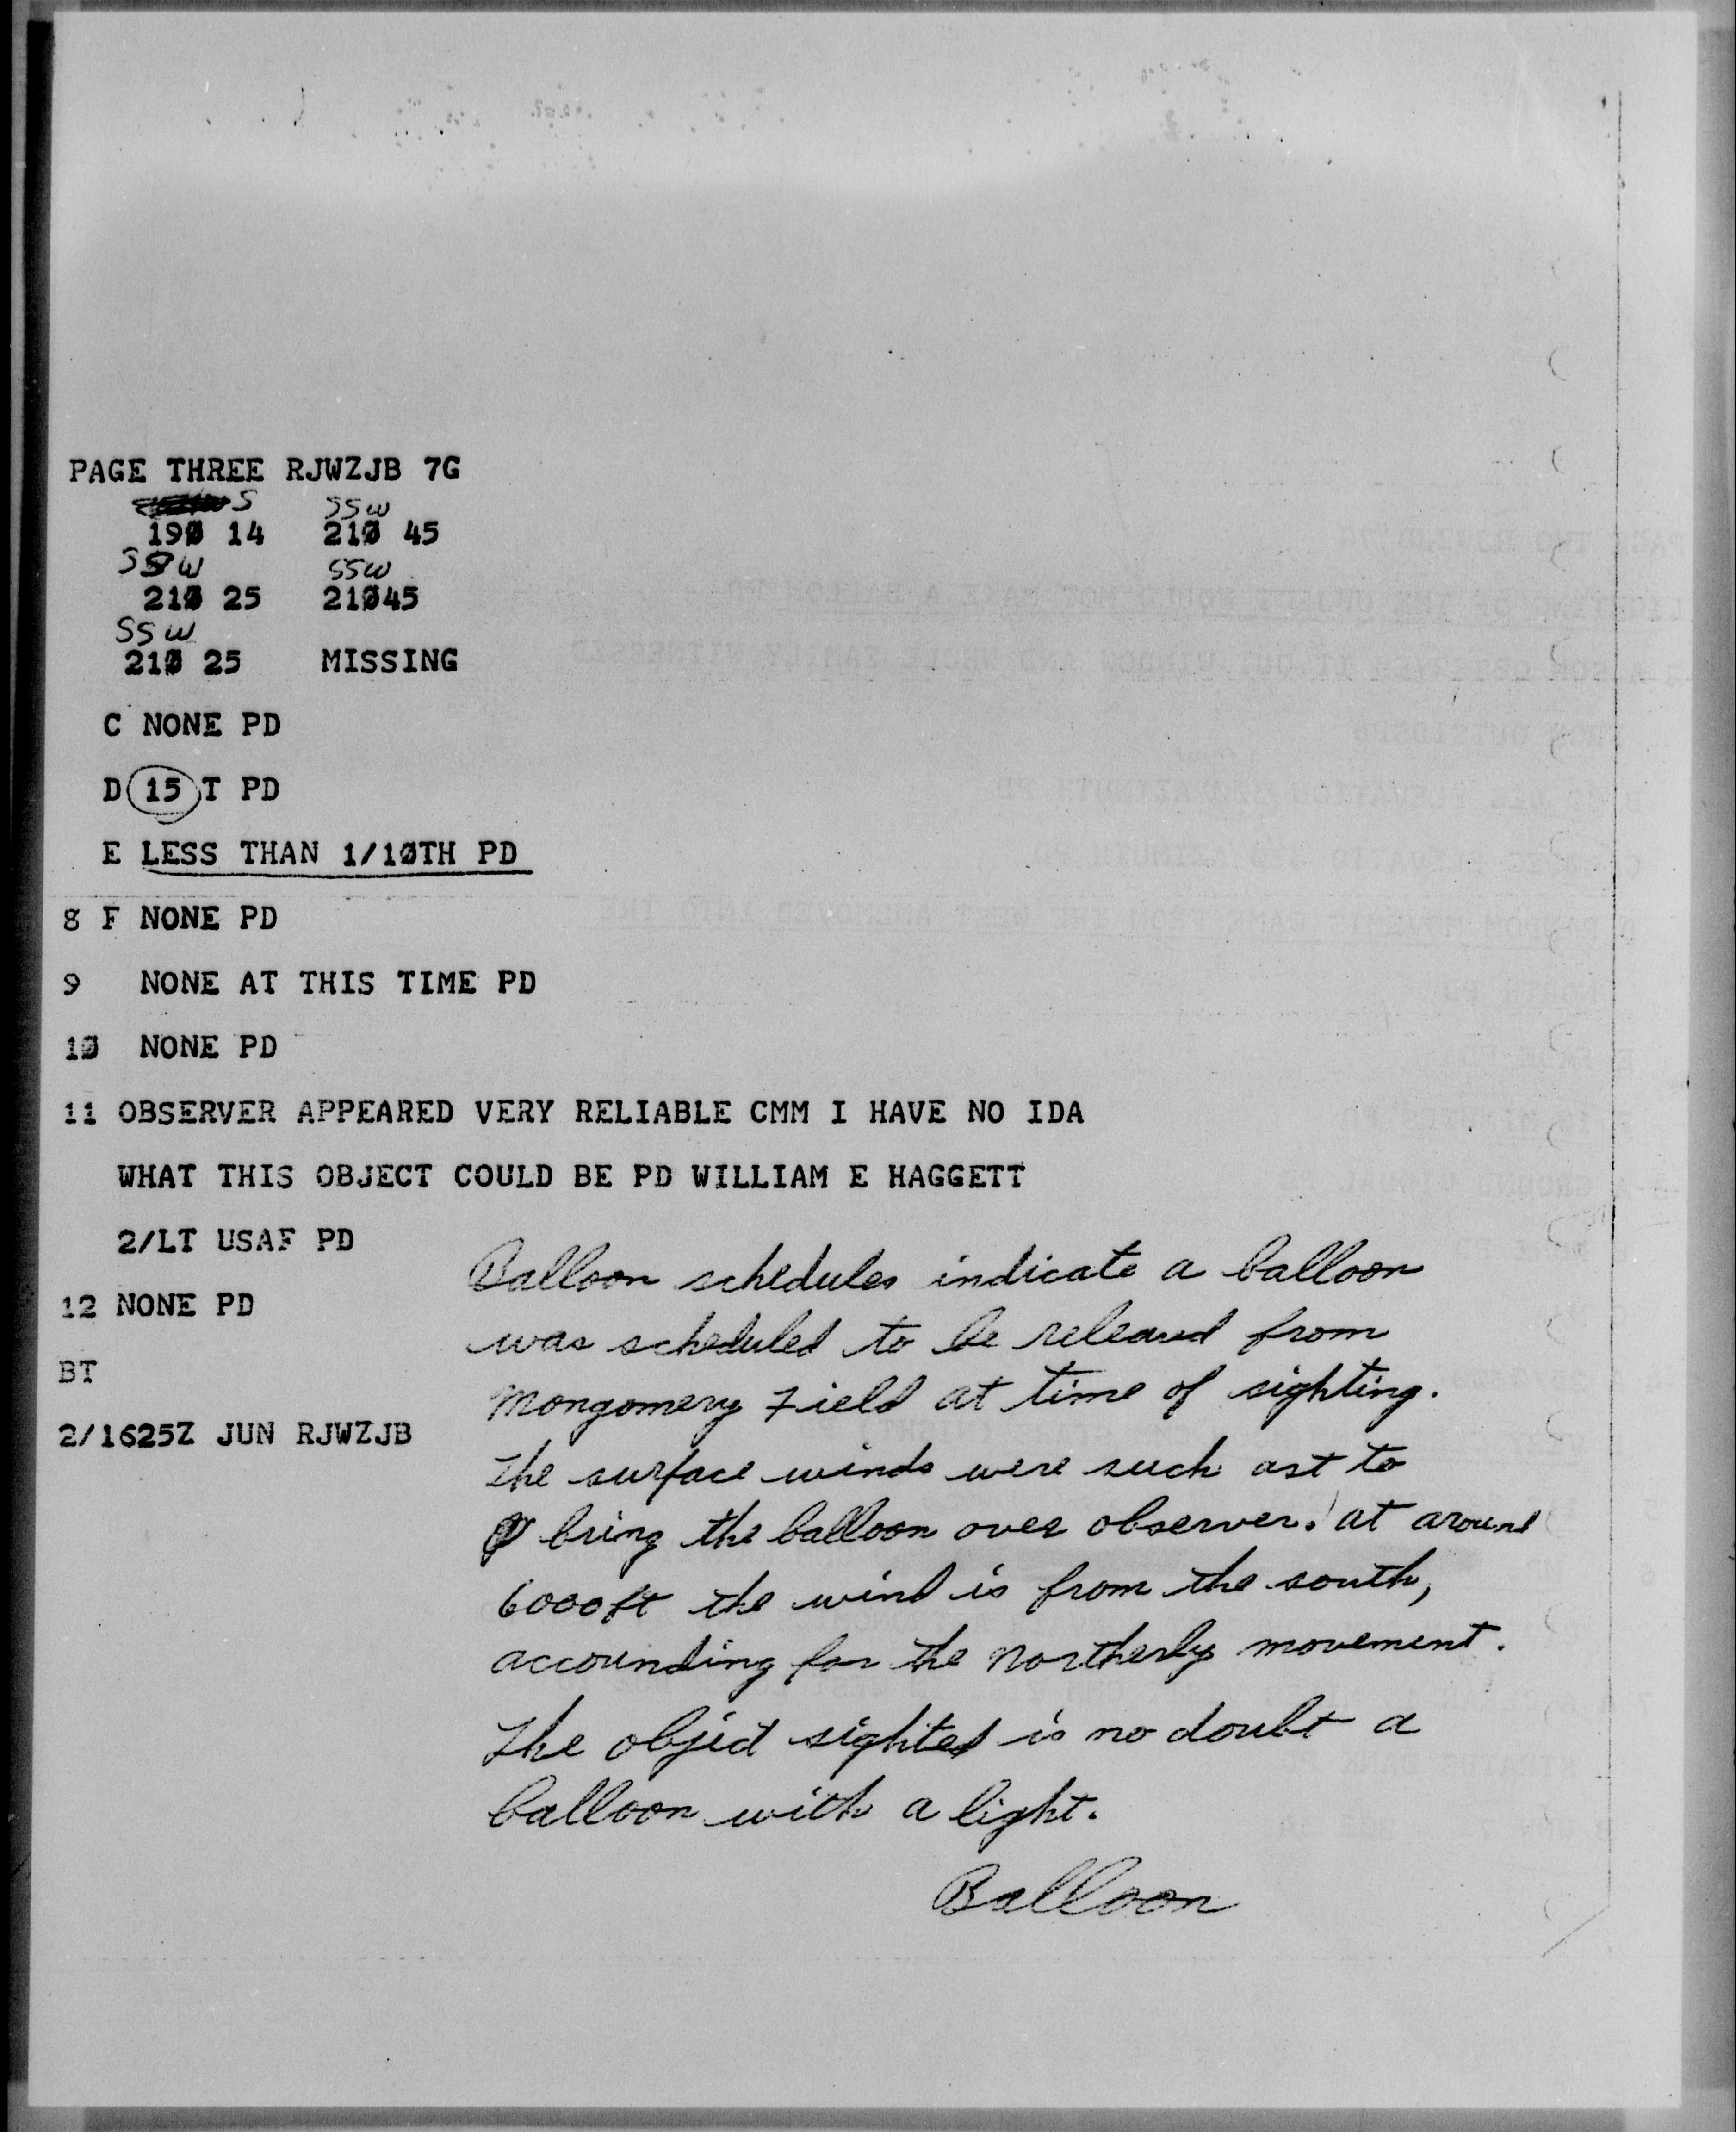 PAGE THREE RJWZJB 7G
S SSW
190 14 210 45
SSW SSW
210 25 21045
SSW
210 25 MISSING
C NONE PD
D 15 T PD
E LESS THAN 1/10TH PD
8 F NONE PD
9 NONE AT THIS TIME PD
10 NONE PD
11 OBSERVER APPEARED VERY RELIABLE CMM I HAVE NO IDA
WHAT THIS OBJECT COULD BE PD WILLIAM E HAGGETT
2/LT USAF PD
12 NONE PD
BT
2/1625Z JUN RJWZJB
Balloon schedules indicate a balloon
was scheduled to be released from
Mongomery Field at time of sighting.
The surface winds were such ast to
bring the balloon over observer. at around
6000ft the wind is from the south,
accounding for the northerly movement.
The objed sighted is no doubt a
balloon with a light.
Balloon